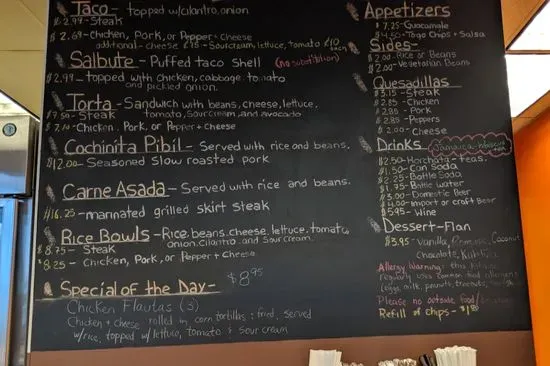 Taco - topped w/cilantro, onion
$2.99 - Steak
$2.69 - Chicken, Pork, or Pepper + Cheese
additional - cheese
Sour cream, lettuce, tomato
each
Salbute - Puffed taco shell (no substitution)
$2.99 - topped with chicken, cabbage tomato
and pickled onion.
Torta - Sandwich with beans, cheese, lettuce,
$7.50 - Steak tomato, Sour cream, and avocado
Chicken, Pork, or Pepper + Cheese
Cochinita Pibil - Served with rice and beans.
$12.00 - Seasoned Slow roasted pork
Carne Asada - Served with rice and beans.
$16.25 - marinated grilled skirt steak
Rice Bowls - Rice, beans, cheese, lettuce, tomato,
onion, cilantro and sour cream.
$8.75 - Steak
$8.25 - Chicken, Pork, or Pepper + Cheese
Special of the Day - $8.95
Chicken Flautas (3)
Chicken + cheese rolled in corn tortillas; fried, served
w/rice, topped w/lettuce, tomato & sour cream
Appetizers
$7.25 - Guacamole
$4.50 - Togo Chips + Salsa
Sides -
$2.00 - Rice or Beans
$2.00 - Vegetarian Beans
Quesadillas
$3.15 - Steak
$2.85 - Chicken
$2.85 - Pork
$2.85 - Peppers
$2.00 - Cheese
Drinks Jamaica-hibiscus
$2.50 - Horchata - teas.
$1.50 - Can Soda
$2.25 - Bottle Soda
$1.75 - Bottle Water
$3.00 - Domestic Beer
$4.00 - Import or craft Beer
$5.95 - Wine
Dessert - Flan
$3.95 - Vanilla, Coconut
Chocolate,
Allergy Warning: this kitchen
regularly uses common food allergens
(eggs, milk, peanuts, treenuts,
Please no outside food/
Refill of chips -